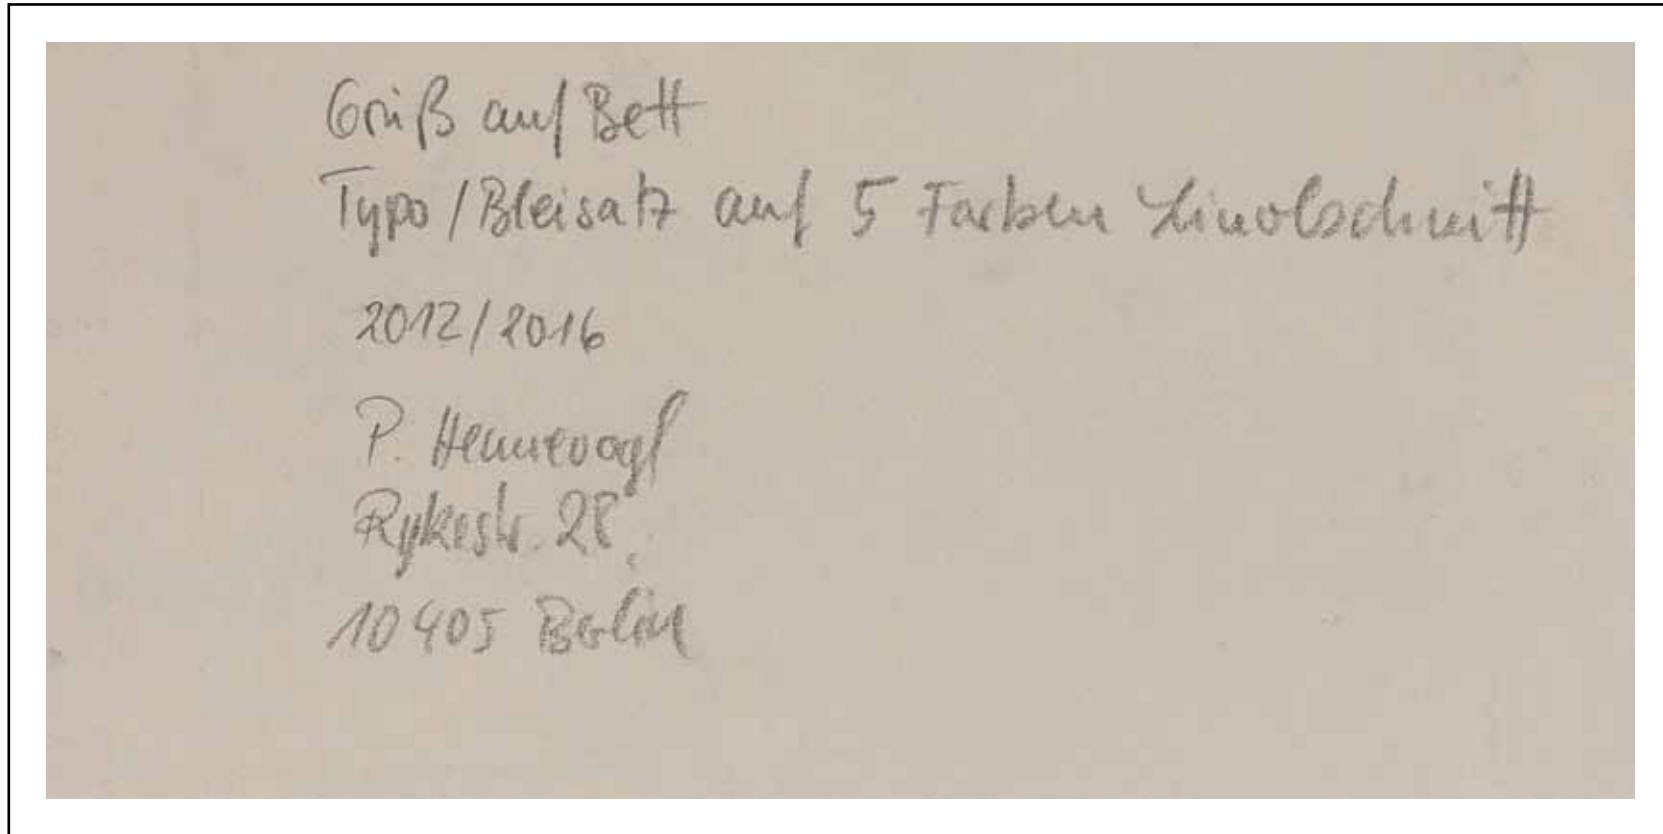 Grüß auf Bett
Typo/Bleisatz auf 5 Farben Linolschnitt
2012/2016
P. Hennevogl
Rykestr. 28
10405 Berlin